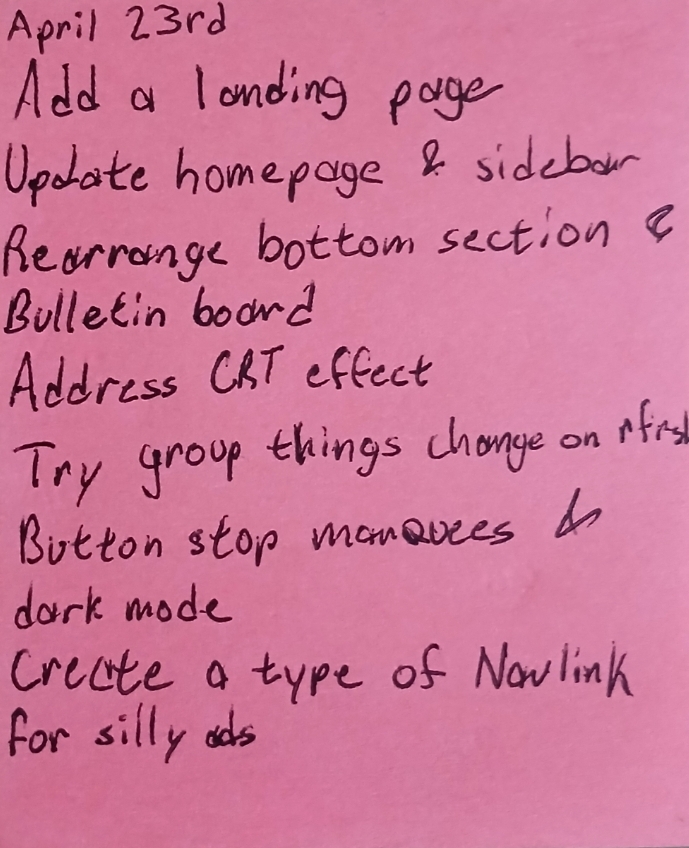 April 23rd
Add a landing page
Update homepage & sidebar
Rearrange bottom section &
Bulletin board
Address CRT effect
Try group things change on rfrsh
Button stop marquees &
dark mode
Create a type of Navlink
for silly ads